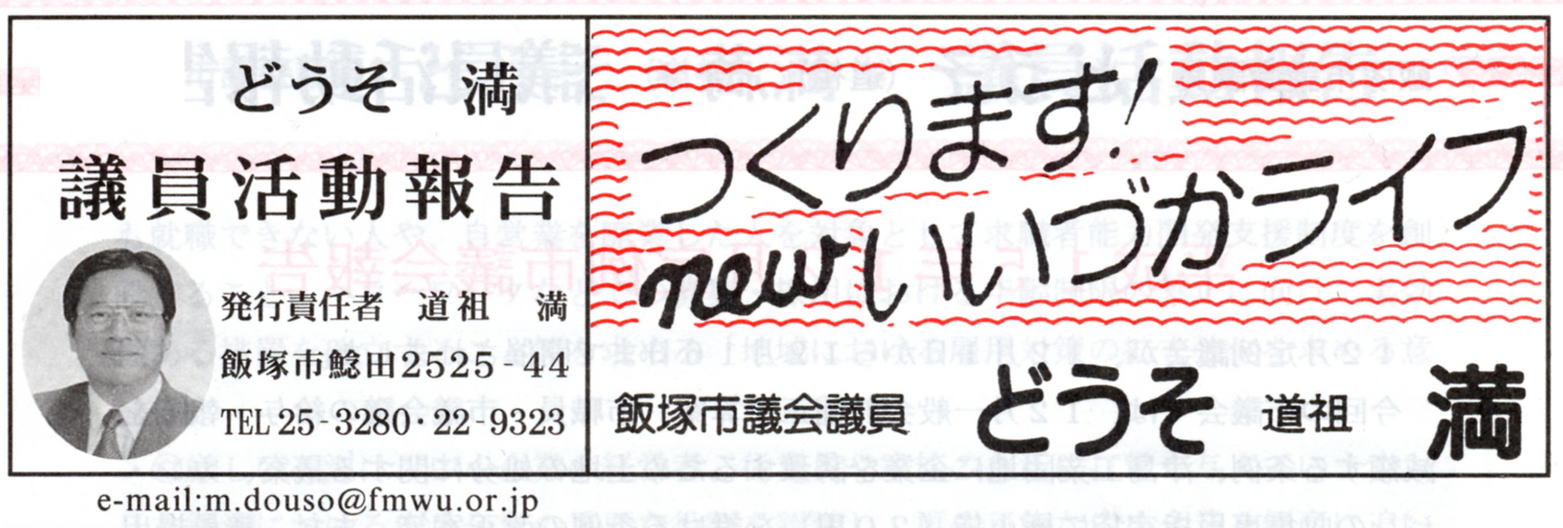 どうそ 満
議員活動報告
発行責任者 道祖 満
飯塚市鯰田2525-44
TEL 25-3280・22-9323
e-mail:m.douso@fmwu.or.jp
つくります!
newいいづかライフ
飯塚市議会議員 どうそ 道祖 満